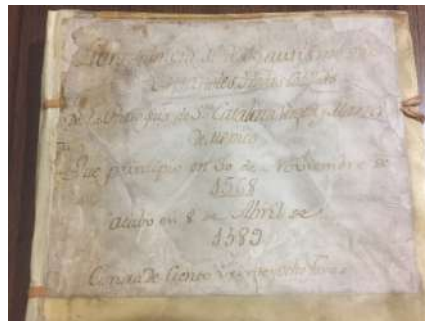 Libro primero de Bautismos de
Españoles
De la Parroquia de Sta Catalina Virgen y Martir
de Mexico
Que principio en 30 de Noviembre de
1568
acabo en 8 de Abril de
1589
Consta de Ciento Veinte y ocho